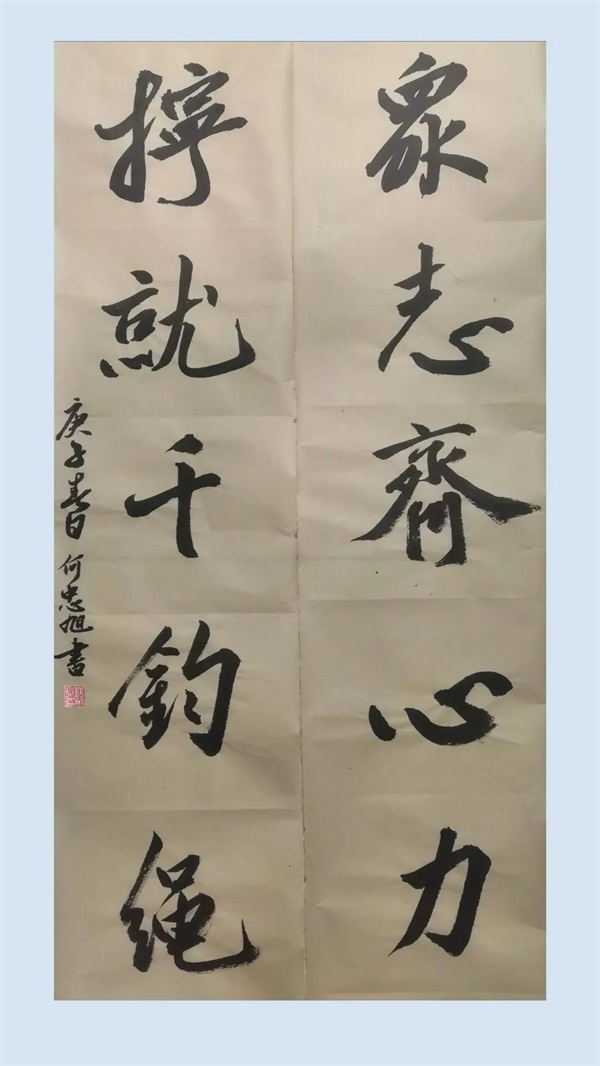 眾志齊心力
擰就千鈞繩
庚子春日何忠旭書